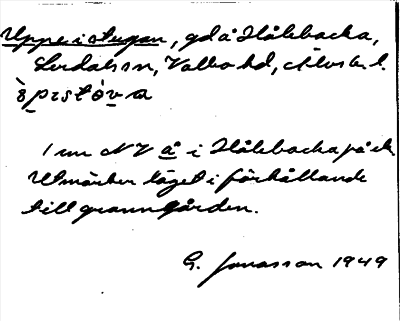 Uppe i stugan, gd å Hålebacka,
Lerdalssn, Valbo hd, Älvsb. l.
1 nr NV å i Hålebacka på ek.
Utmärker läget i förhållande
till granngården.
G. Jonasson 1949